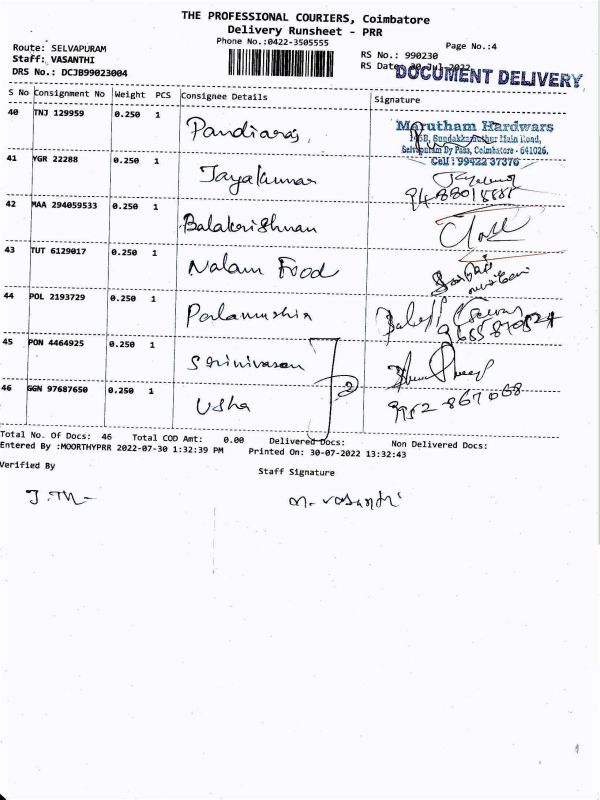 THE PROFESSIONAL COURIERS, Coimbatore
Delivery Runsheet - PRR
Phone No.:0422-3505555
Page No.:4
Route: SELVAPURAM
RS No.: 990230
Staff: VASANTHI
RS Date: 30 Jul 2022
DRS No.: DCJB99023004
DOCUMENT DELIVERY
S No Consignment No Weight PCS Consignee Details Signature
40 TNJ 129959 0.250 1 Pandiaraj
Marutham Hardwars
Sundakkamuthur Main Road,
Selvapuram By Pass, Coimbatore - 641026.
Cell : 99422 37376
41 YGR 22288 0.250 1 Jayakumar
42 MAA 294059533 0.250 1 Balakrishnan
43 TUT 6129017 0.250 1 Nalam Food
44 POL 2193729 0.250 1
45 PON 4464925 0.250 1 Srinivasan
46 GGN 97687650 0.250 1 Usha
9952 867068
Total No. Of Docs: 46 Total COD Amt: 0.00 Delivered Docs: Non Delivered Docs:
Entered By :MOORTHYPRR 2022-07-30 1:32:39 PM Printed On: 30-07-2022 13:32:43
Verified By
Staff Signature
n. vasanthi